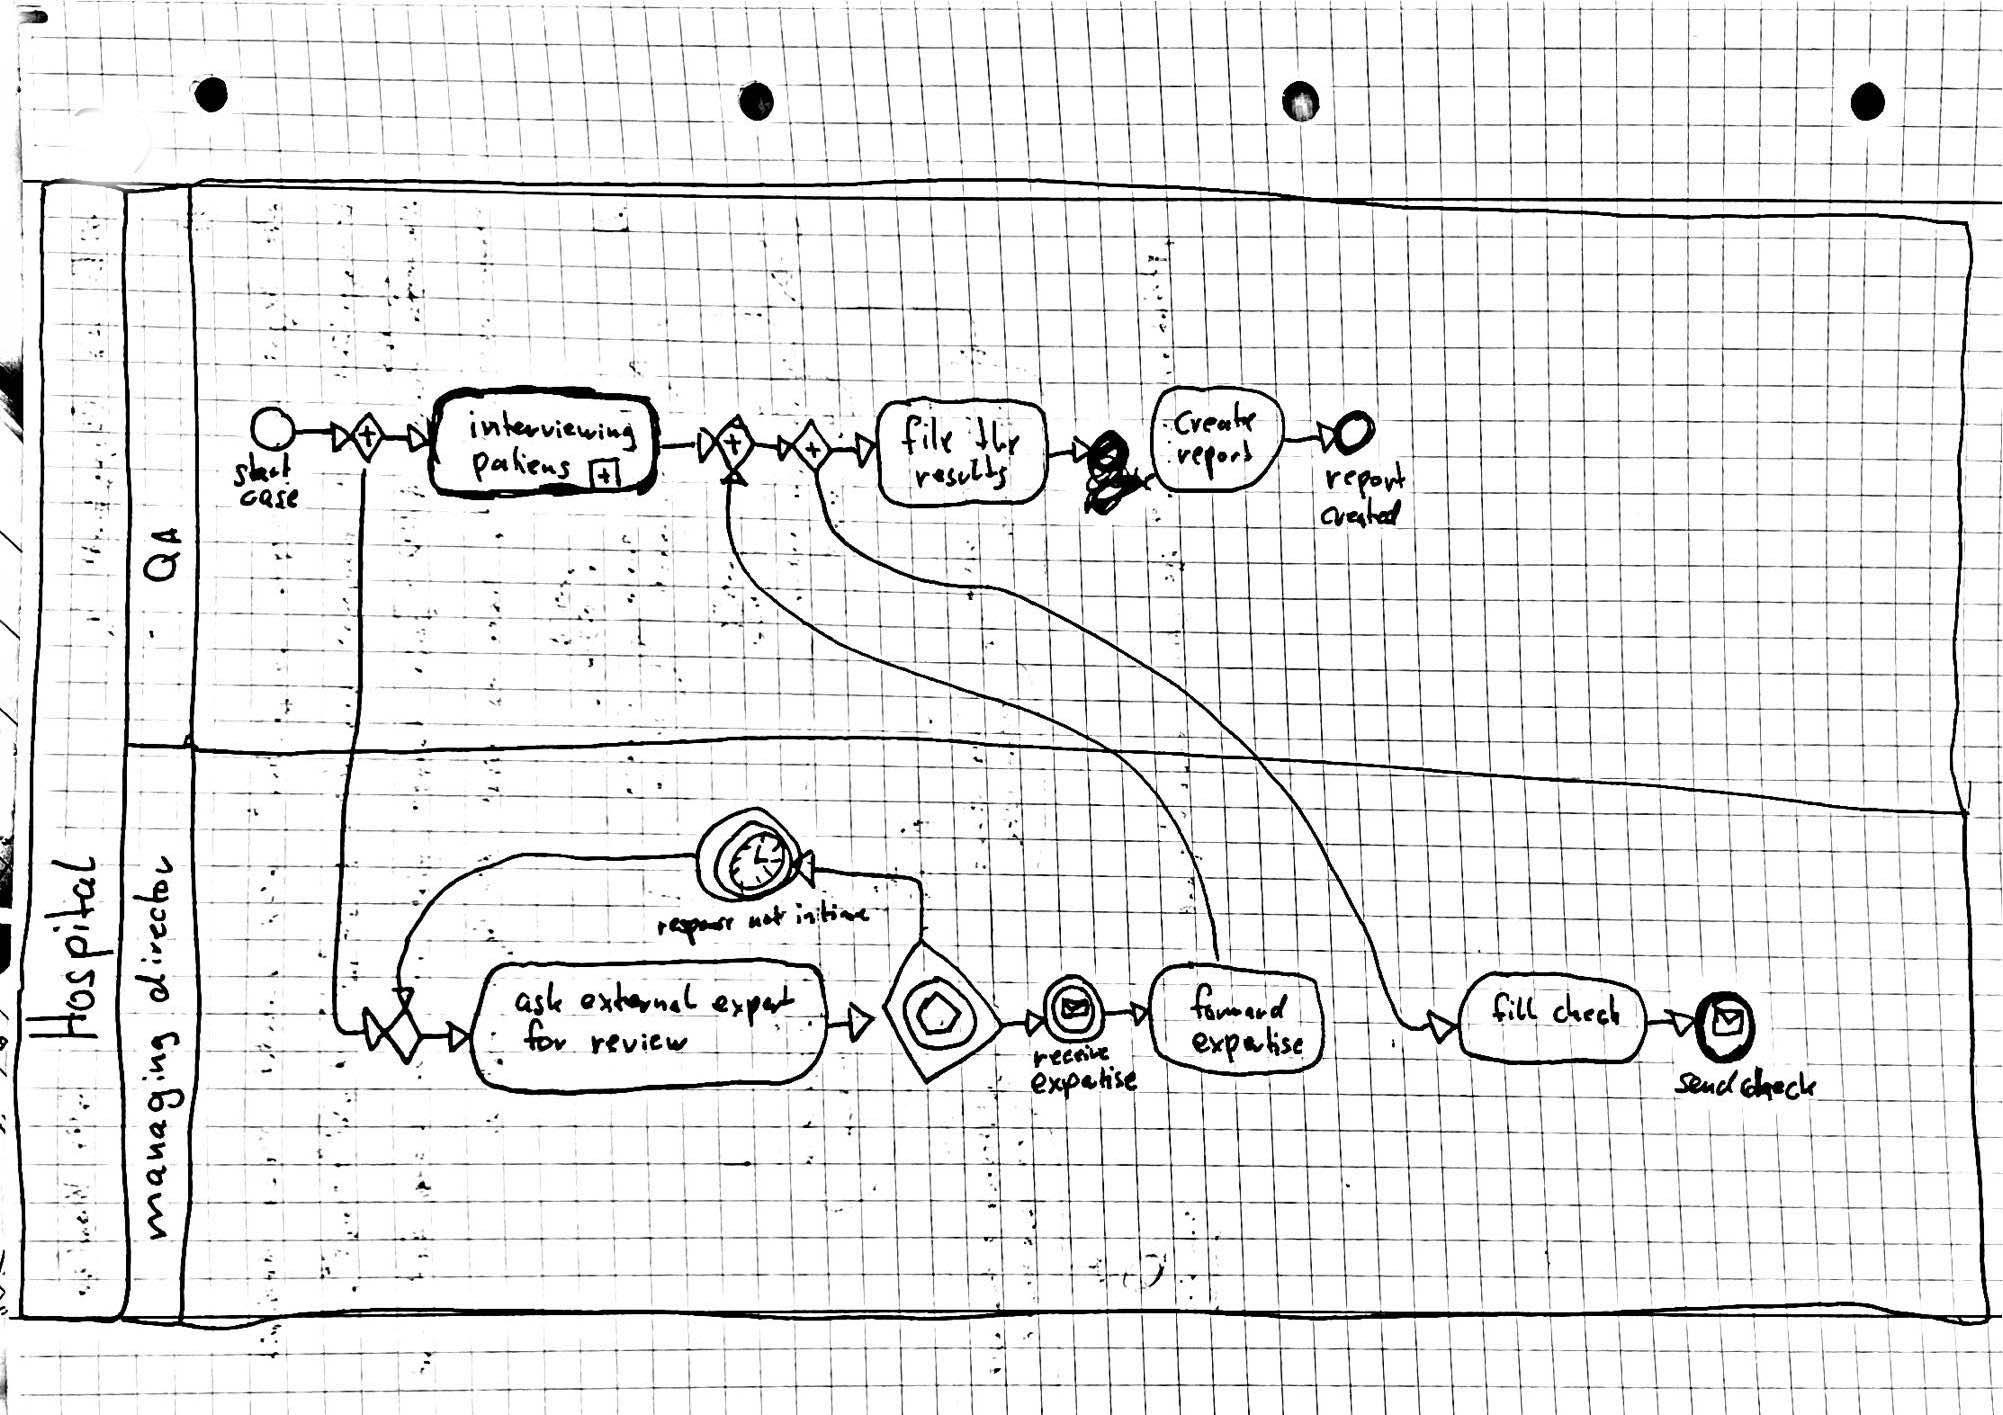 Hospital
QA
start
case
interviewing
patiens
file the
results
Create
report
report
created
managing director
response not intime
ask external expert
for review
receive
expertise
forward
expertise
fill check
send check